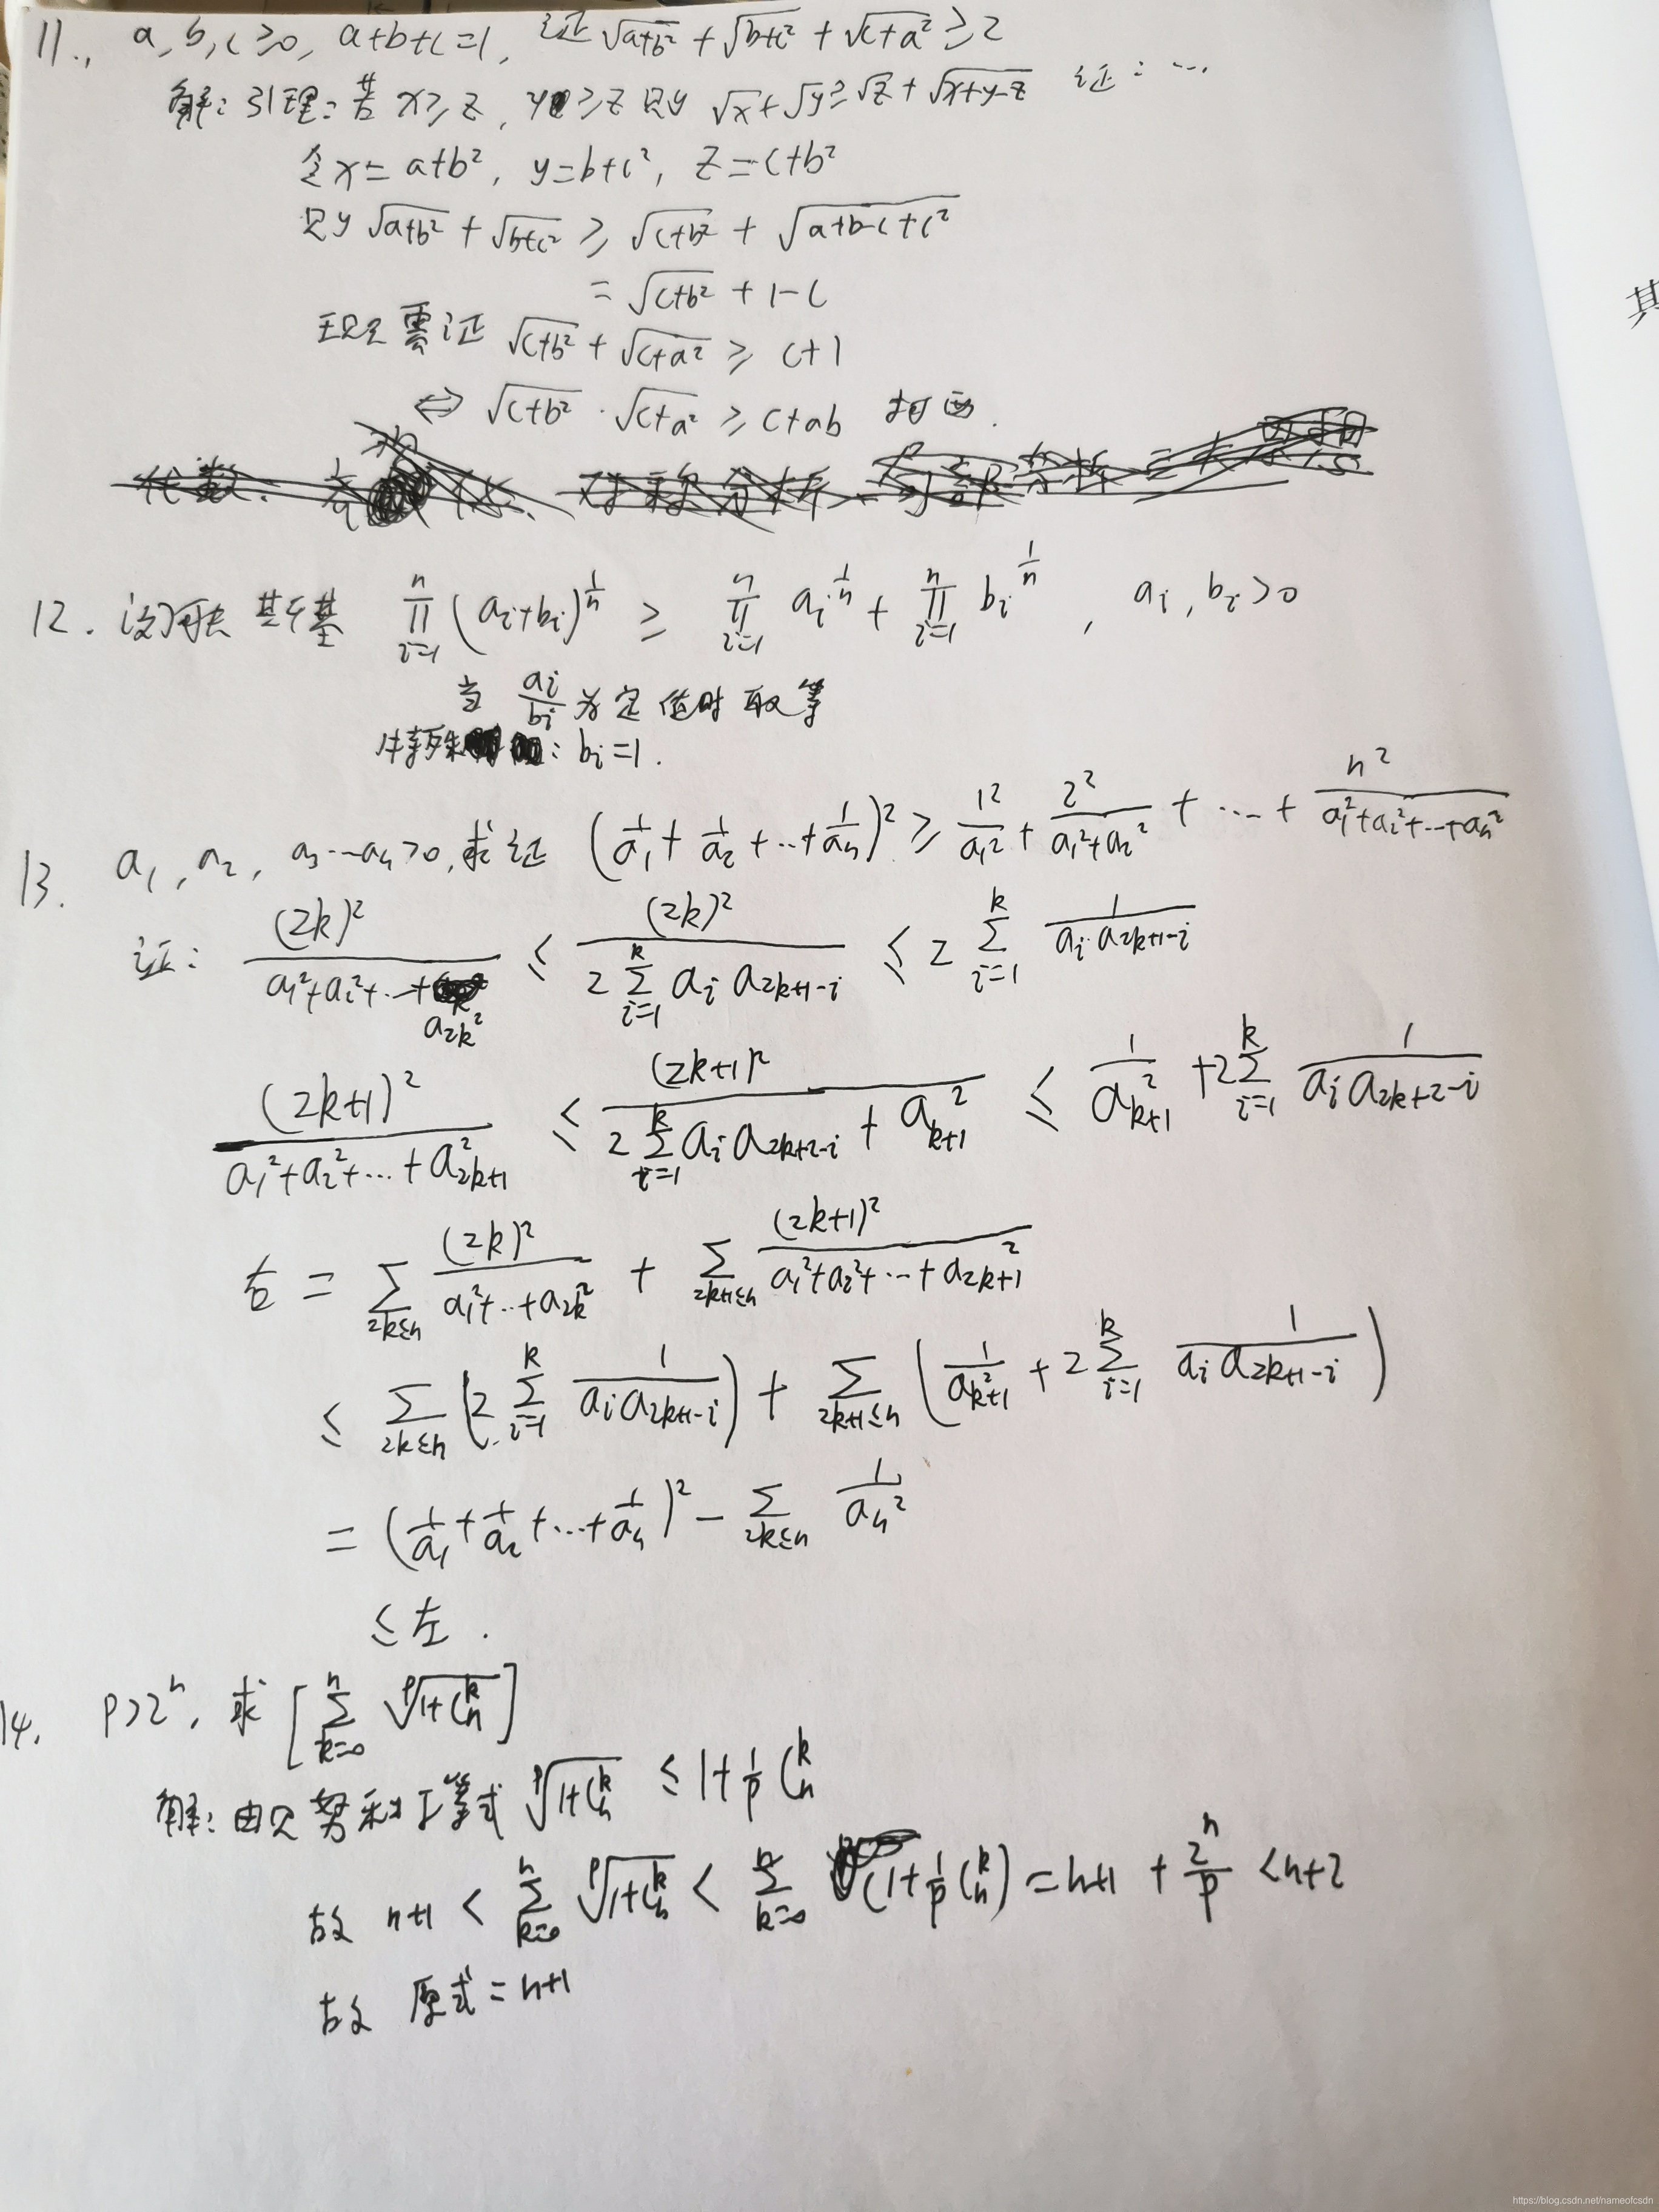 11., a,b,c≥0, a+b+c=1, 证 √(a+b²) + √(b+c²) + √(c+a²) ≥2
解: 引理: 若 x≥z, y≥z 则 √x+√y≥√z+√(x+y-z) 证: ...
令x= a+b², y=b+c², z=c+b²
则 √(a+b²) + √(b+c²) ≥ √(c+b²) + √(a+b-c+c²)
= √(c+b²) + 1-c
现只需证 √(c+b²) + √(c+a²) ≥ c+1
⇔ √(c+b²) · √(c+a²) ≥ c+ab 柯西.
12. 闵可夫斯基 ∏_{i=1}^{n} (a_i+b_i)^{1/n} ≥ ∏_{i=1}^{n} a_i^{1/n} + ∏_{i=1}^{n} b_i^{1/n} , a_i, b_i>0
当 a_i/b_i 为定值时取等
特殊: b_i=1.
13. a₁, a₂, a₃…a_n>0, 求证 (1/a₁ + 1/a₂ +…+ 1/a_n)² ≥ 1²/a₁² + 2²/(a₁²+a₂²) + … + n²/(a₁²+a₂²+…+a_n²)
证: (2k)²/(a₁²+a₂²+…+a_{2k}²) ≤ (2k)²/(2∑_{i=1}^{k} a_i a_{2k+1-i}) ≤ 2∑_{i=1}^{k} 1/(a_i a_{2k+1-i})
(2k+1)²/(a₁²+a₂²+…+a_{2k+1}²) ≤ (2k+1)²/(2∑_{i=1}^{k} a_i a_{2k+2-i} + a_{k+1}²) ≤ 1/a_{k+1}² + 2∑_{i=1}^{k} 1/(a_i a_{2k+2-i})
右 = ∑_{2k≤n} (2k)²/(a₁²+…+a_{2k}²) + ∑_{2k+1≤n} (2k+1)²/(a₁²+a₂²+…+a_{2k+1}²)
≤ ∑_{2k≤n} (2∑_{i=1}^{k} 1/(a_i a_{2k+1-i})) + ∑_{2k+1≤n} (1/a_{k+1}² + 2∑_{i=1}^{k} 1/(a_i a_{2k+1-i}))
= (1/a₁+1/a₂+…+1/a_n)² - ∑_{2k≤n} 1/a_n²
≤左.
14. p>2ⁿ, 求 [∑_{k=0}^{n} ᵖ√(1+C_n^k)]
解: 由贝努利不等式 ᵖ√(1+C_n^k) ≤ 1+ 1/p C_n^k
故 n+1 < ∑_{k=0}^{n} ᵖ√(1+C_n^k) < ∑_{k=0}^{n} (1+ 1/p C_n^k) = n+1 + 2ⁿ/p < n+2
故 原式=n+1
其
https://blog.csdn.net/nameofcsdn